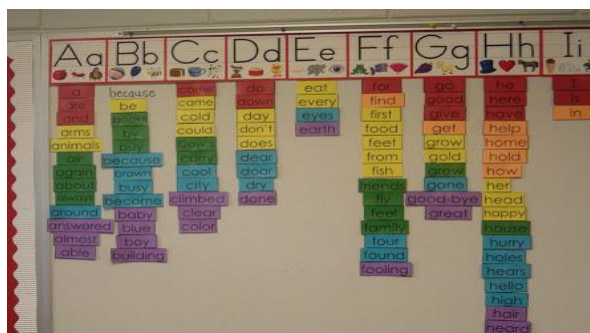 Aa
a
are
and
arms
animals
air
again
about
always
around
answered
almost
able
Bb
because
be
books
by
buy
because
brown
busy
become
baby
blue
boy
building
Cc
come
came
cold
could
carry
cool
city
climbed
clear
color
Dd
do
down
day
don't
does
dear
door
dry
done
Ee
eat
every
eyes
earth
Ff
for
find
first
food
feet
from
fish
friends
fly
feel
family
four
found
fooling
Gg
go
good
give
get
grow
gold
grew
gone
good-bye
great
Hh
he
here
have
help
home
hold
how
her
head
happy
house
hurry
holes
hears
hello
high
hair
heard
Ii
I
is
in